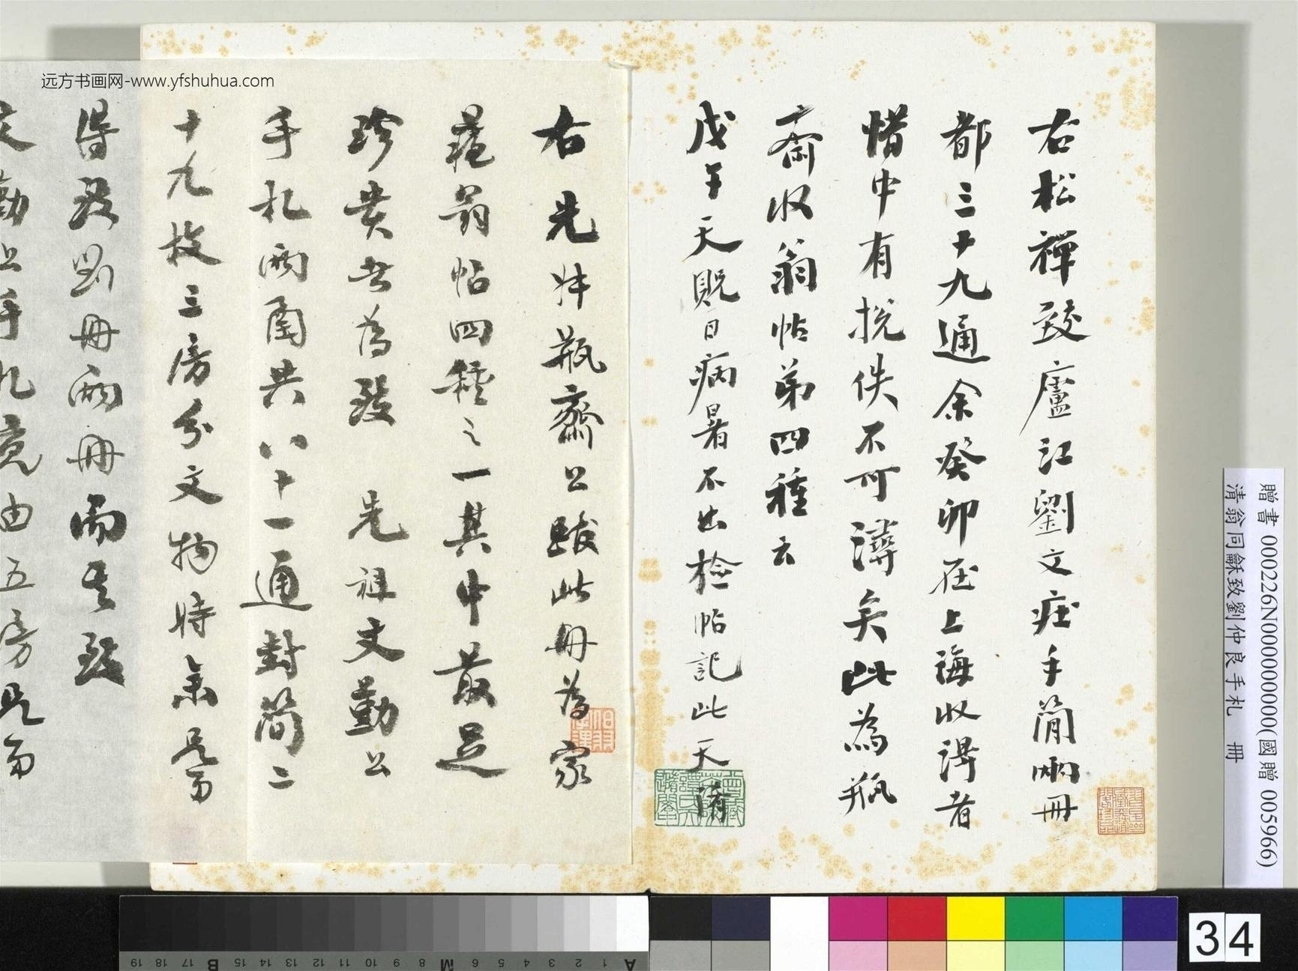 右松禅致廬江劉文莊手簡兩冊
都三十九通余癸卯在上海收得者
惜中有搅佚不可得矣此為瓶
齋收翁帖弟四種云
戊午天貺日病暑不出检帖記此天
右先叔瓶齋公跋此冊為家
藏翁帖四種之一其中最足
珍贵者為致 先祖文勤公
手札兩冊共八十一通對简二
十九枚三房分文物時余只留
得致劉冊兩冊而其致
文勤公手札竟由五房只留
贈書 000226N000000000(國贈 005966)
清翁同龢致劉仲良手札 冊
远方书画网-www.yfshuhua.com
34
19 18 17 16 B 15 14 13 12 11 10 9 8 M 7 6 5 4 3 2 1 A